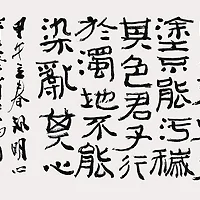 塗不能污穢
其色君子行
於濁地不能
染亂其心
甲午立春明心